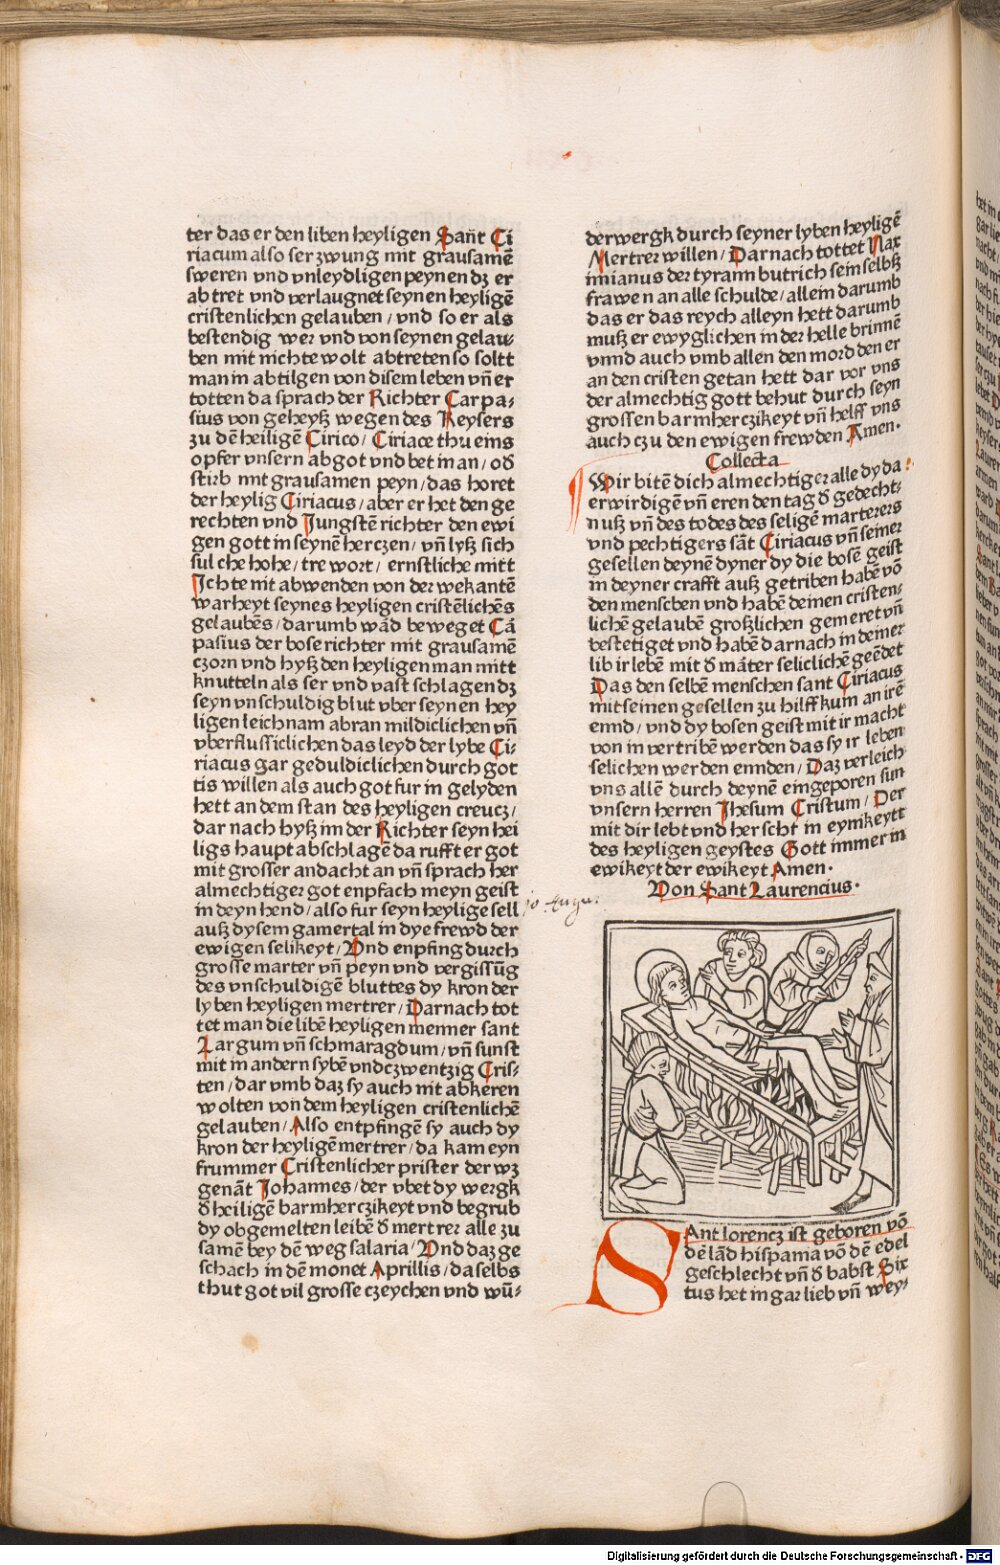 ter das er den liben heyligen Sañt Ci
riacum also ser zwung mit grausamē
sweren vnd vnleydligen peynen dz er
ab tret vnd verlaugnet seynen heyligē
cristenlichen gelauben / vnd so er als
bestendig wer vnd von seynen gelau⸗
ben mit nichte wolt abtreten so soltt
man in abtilgen von disem leben vñ er
totten da sprach der Richter Carpa⸗
sius von geheyß wegen des Keysers
zu dē heiligē Cirico / Ciriace thu eins
opfer vnsern abgot vnd bet in an / od̄
stirb mit grausamen peyn / das horet
der heylig Ciriacus / aber er het den ge
rechten vnd Jungstē richter den ewi
gen gott in seynē herczen / vñ lyß sich
sulche hohe / tre wort / ernstliche mitt
Ichte nit abwenden von der wekantē
warheyt seynes heyligen cristēlichēs
gelaubēs / darumb wād beweget Cā
pasius der bose richter mit grausamē
czorn vnd hyß den heyligen man mitt
knutteln als ser vnd vast schlagen dz
seyn vnschuldig blut vber seynen hey
ligen leichnam abran mildiclichen vñ
vberflussiclichen das leyd der lybe Ci⸗
riacus gar geduldiclichen durch got
tis willen als auch got fur in gelyden
hett an dem stan des heyligen creucz /
dar nach hyß im der Richter seyn hei
ligs haupt abschlagē da rufft er got
mit grosser andacht an vñ sprach her
almechtiger got enpfach meyn geist
in deyn hend / also fur seyn heylige sell
auß dysem gamertal in dye frewd der
ewigen selikeyt / Vnd enpfing durch
grosse marter vñ peyn vnd vergissūg
des vnschuldigē bluttes dy kron der
lyben heyligen mertrer / Darnach tot
tet man die libē heyligen menner sant
Largum vñ schmaragdum / vñ sunst
mit in andern sybē vnd czwentzig Cris⸗
ten / dar vmb daz sy auch nit abkeren
wolten von dem heyligen cristenlichē
gelauben / Also entpfingē sy auch dy
kron der heyligē mertrer / da kam eyn
frummer Cristenlicher prister der wz
genāt Johannes / der vbet dy wergk
d̄ heiligē barmherczikeyt vnd begrub
dy obgemelten leibē d̄ mertrer alle zu
samē bey dē weg salaria / Vnd daz ge
schach in dē monet Aprillis / daselbs
thut got vil grosse czeychen vnd wū⸗
derwergk durch seyner lyben heyligē
Mertrer willen / Darnach tottet Max
imianus der tyrann butrich sein selbß
frawen an alle schulde / allein darumb
das er das reych alleyn hett darumb
muß er ewyglichen in der helle brinnē
vnnd auch vmb allen den mord den er
an den cristen getan hett dar vor vns
der almechtig gott behut durch seyn
grossen barmherczikeyt vñ helff vns
auch czu den ewigen frewden Amen.
Collecta
Wir bitē dich almechtiger alle dy da
erwirdigē vñ eren den tag d̄ gedecht⸗
nuß vñ des todes des seligē marterers
vnd pechtigers sāt Ciriacus vñ seiner
gesellen deynē dyner dy die bosē geist
in deyner crafft auß getriben habē vō
den menschen vnd habē deinen cristen⸗
lichē gelaubē großlichen gemeret vñ
bestetiget vnd habē darnach in deiner
lib ir lebē mit d̄ māter seliclichē geēdet
Das den selbē menschen sant Ciriacus
mit seinen gesellen zu hilff kum an irē
ennd / vnd dy bosen geist mit ir macht
von in vertribē werden das sy ir leben
selichen werden ennden / Daz verleich
vns allē durch deynē eingeporen sun
vnsern herren Jhesum Cristum / Der
mit dir lebt vnd herscht in eynikeytt
des heyligen geystes Gott immer in
ewikeyt der ewikeyt Amen.
Von Sant Laurencius.
10 Augu.
SAnt lorencz ist geboren vō
dē lād hispania vō dē edel
geschlecht vñ d̄ babst Six
tus het in gar lieb vñ wey⸗
Digitalisierung gefördert durch die Deutsche Forschungsgemeinschaft - DFG